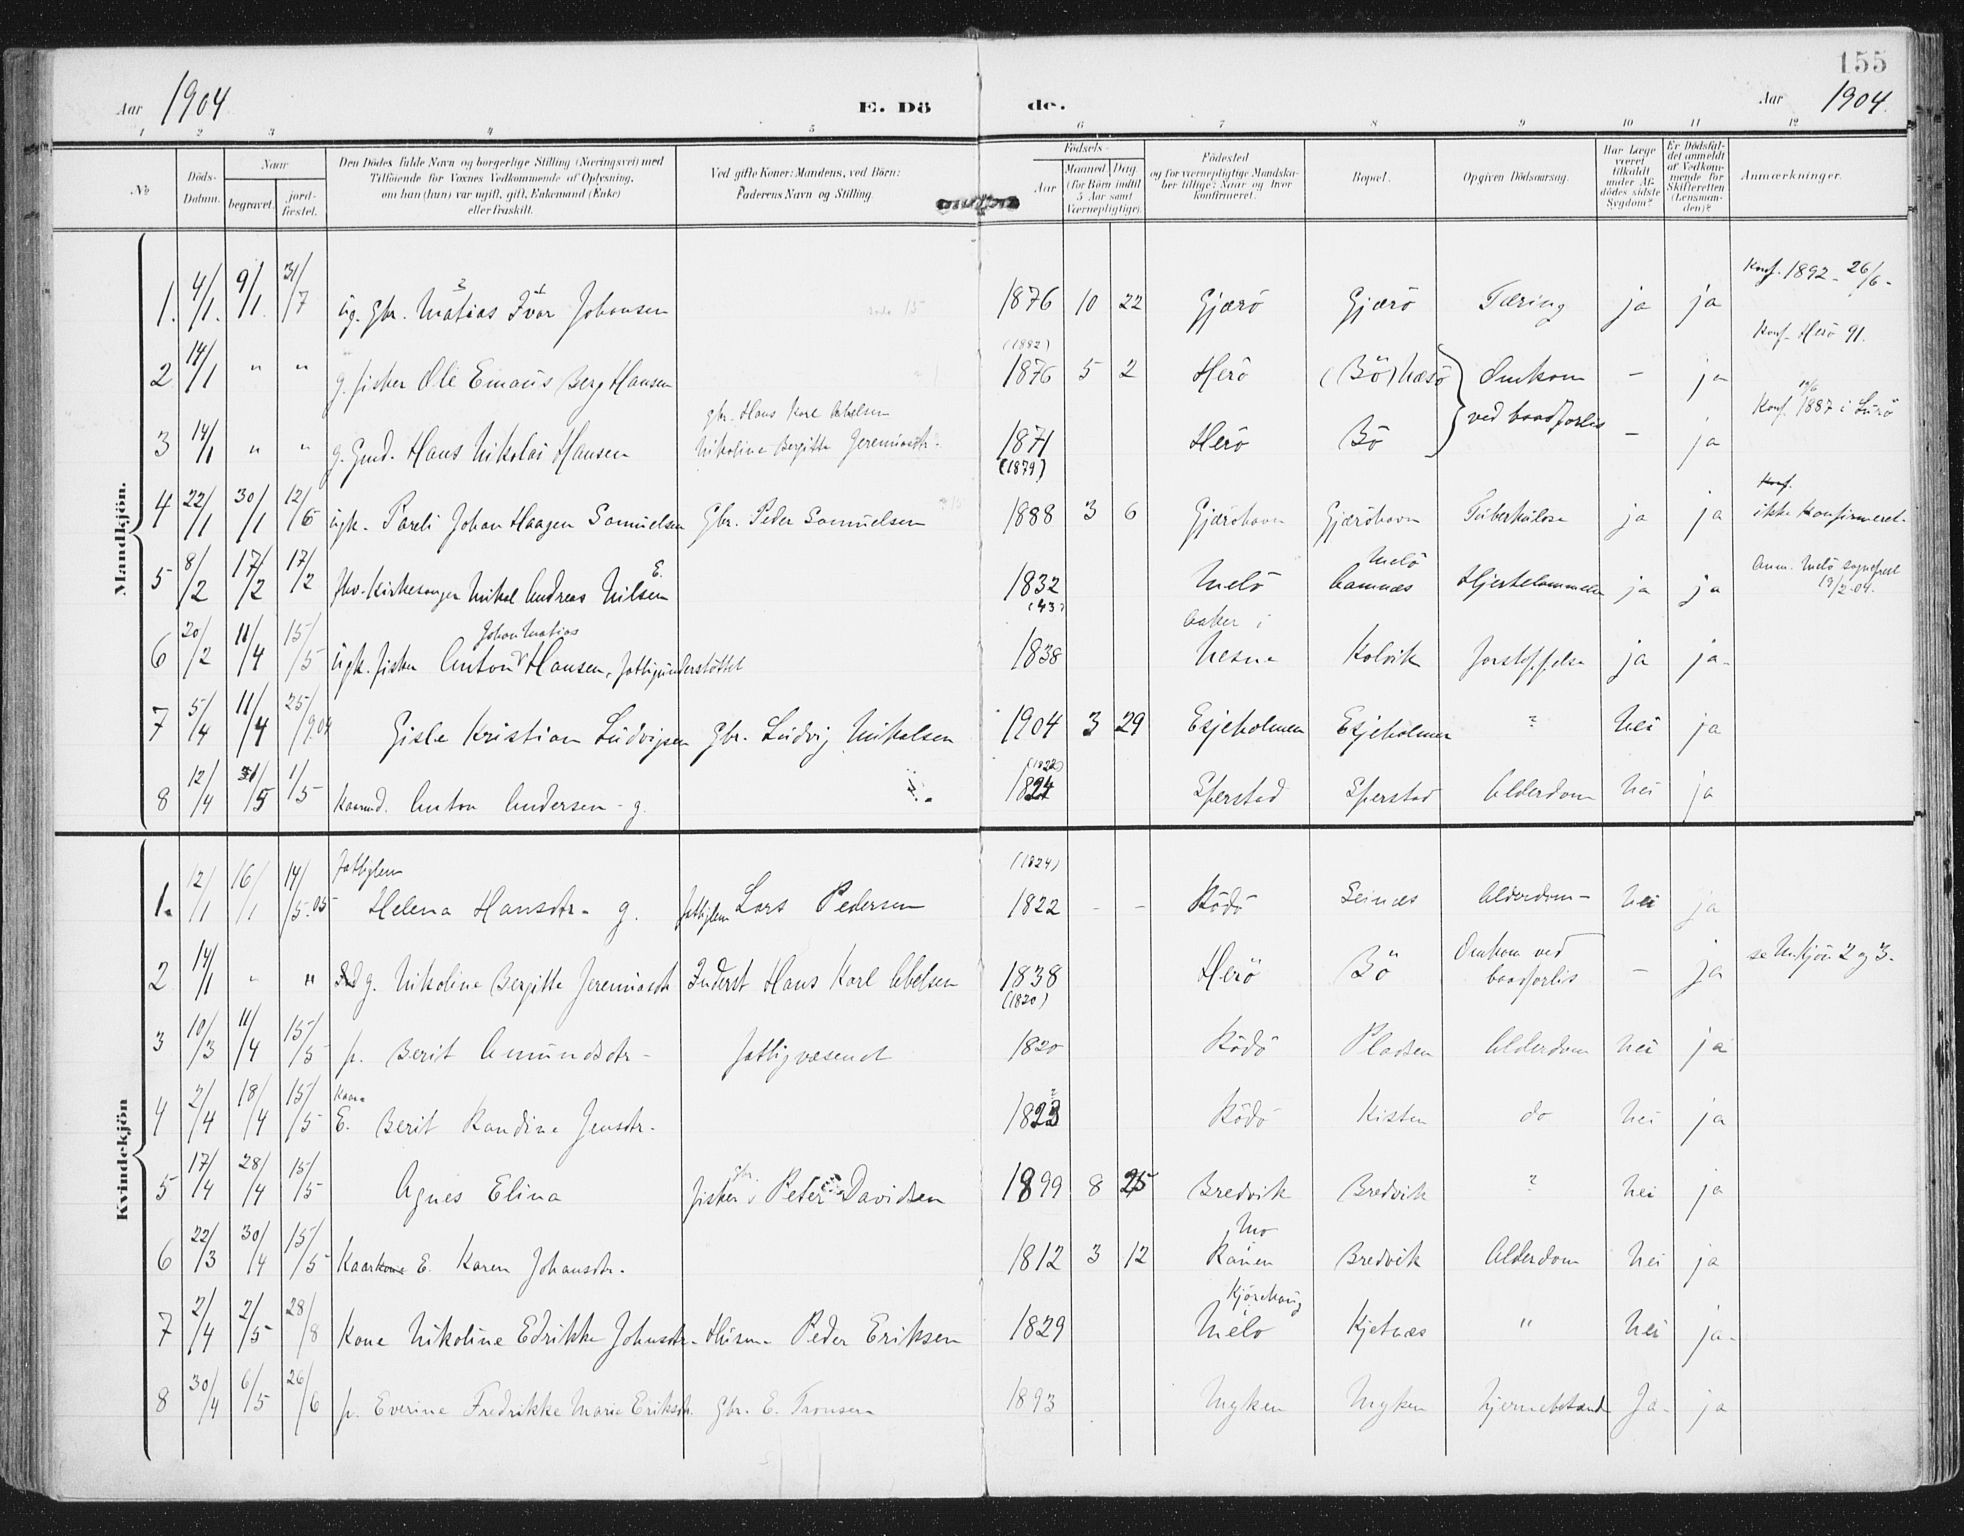 155
Aar 1904 E. Dö de. Aar 1904.
1 2 3 4 5 6 7 8 9 10 11 12
No
Döds-
Datum.
Naar
begravet.
jord-
fæstet.
Den Dödes fulde Navn og borgerlige Stilling (Næringsvei) med
Tilföiende for Voxnes Vedkommende af Oplysning,
om han (hun) var ugift, gift, Enkemand (Enke)
eller fraskilt.
Ved gifte Koner: Mandens, ved Börn:
Faderens Navn og Stilling.
Födsels-
Aar
Maaned Dag
(for Börn indtil
5 Aar samt
Værnepligtige).
Födested
og for værnepligtige Mandska-
ber tillige: Naar og hvor
konfirmeret.
Bopæl.
Opgiven Dödsaarsag.
Har Læge
været
tilkaldt
under Af-
dödes sidste
Sygdom?
Er Dödsfal-
det anmeldt
af Vedkom-
mende for
Skifteretten
(Lensman-
den)?
Anmærkninger.
Mandkjön.
Konf. 1892 26/6-
1. 4/1. 9/1. 31/7 ug. Gbr. Matias Ivar Johansen 1876 10 22 Gjærö Gjærö Tæring ja ja
Konf. Herö 91.
(1882)
2 14/1 " " g. fisker Ole Emaus Berg Hansen 1876 5 2 Herö (Bö) Næsö Omkom - ja
ved baadforlis
gbr. Hans Karl Abelsen
Konf. 1887 i Lurö
3 14/1 " " g. Gmd. Hans Nikolai Hansen Nikoline Bergitte Jeremiasdtr. 1871 Herö Bö - ja
(1879)
Konf.
4 22/1 30/1 12/6 ugk. Pareli Johan Haagen Samuelsen Gbr. Peder Samuelsen 1888 3 6 Gjæröhavn Gjæröhavn Tuberkulose ja ja ikke Konfirmeret.
5 8/2 17/2 17/2 fhv. Kirkesanger Mikal Andreas Nilsen E. 1832 Melö Melö Aamnæs Hjertelammelse ja ja Anm. Melö sognepræst
19/2-04.
(43)
Johan Matias
6 20/2 11/4 15/5 ugk. fisker Anton Hansen, fattigunderstöttet 1838 Nesna Kolvik forstoppelse ja ja-
7 5/4 11/4 25/9.04 Gisle Kristian Ludvigsen Gbr. Ludvig Mikalsen 1904 3 29 Esjeholmen Esjeholmen ? Nei ja
8 12/4 31/5 1/5 Kaarmd. Anton Andersen - g. 1824 Sperstad Sperstad Alderdom Nei ja
Kvindekjön
Fattiglem
(1824)
1. 12/1 16/1 14/5-05 Helena Hansdtr- g. fattiglem Lars Pedersen 1822 - - Rödö Seinæs Alderdom- Nei ja
2 14/1 - " g. Nikoline Bergitte Jeremiasdtr Inderst Hans Karl Abelsen 1838 Herö Bö Omkom ved
baadforlis - ja se M.kjön 2 og 3-
(1820)
3 10/3 11/4 15/5 p. Berit Amundsdtr- fattigvæsenet 1820 Rödö Pladsen Alderdom Nei ja
Kaar-
4 2/4 18/4 15/5 E. Berit Randine Jensdtr. 1823 Rödö Kisten do Nei ja
5 17/4 28/4 15/5 Agnes Elina fisker Gbr. Peter Davidsen 1899 8 25 Bredvik Bredvik ? Nei ja
Mo
6 22/3 30/4 15/5 Kaarkone E. Karen Johansdtr. 1812 3 12 Ranen Bredvik Alderdom Nei ja
Kjörehaug
7 2/4 2/5 28/8 Kone Nikoline Edrikke Johnsdtr- Husm- Peder Eriksen 1829 Melö Kjetnæs " Nei ja-
8 30/4 6/5 26/6 p. Everine Fredrikke Marie Eriksdtr. Gbr. E. Tronsen 1893 Myken Myken hjernebetænd Ja- ja